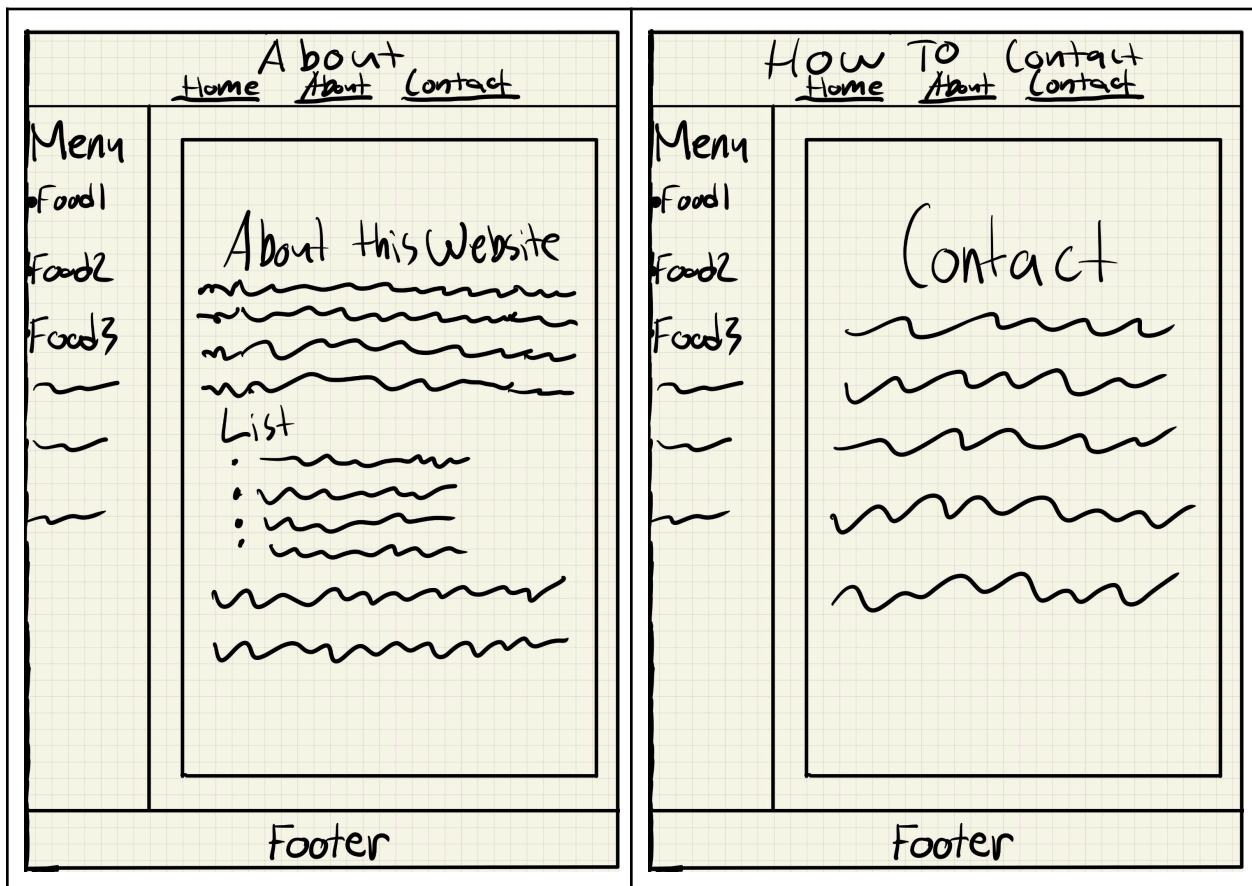 About
Home About Contact
Menu
Food1
Food2
Food3
About this Website
List
Footer
How To Contact
Home About Contact
Menu
Food1
Food2
Food3
Contact
Footer